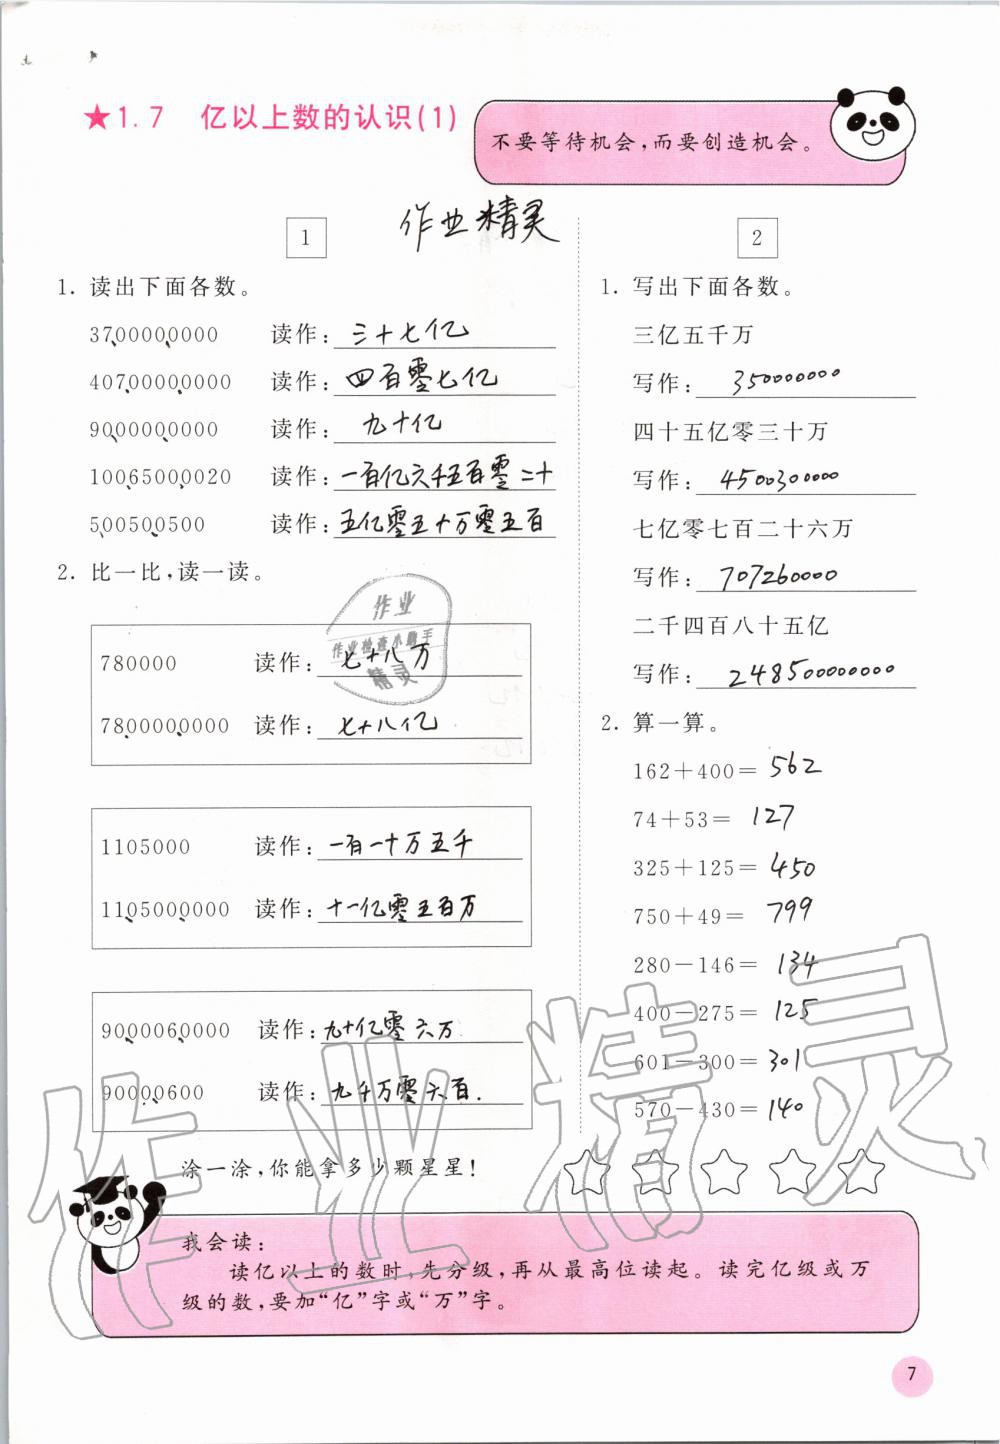 ★1.7 亿以上数的认识(1)
不要等待机会,而要创造机会。
作业精灵
1
1. 读出下面各数。
3700000000 读作: 三十七亿
40700000000 读作: 四百零七亿
9000000000 读作: 九十亿
10065000020 读作: 一百亿六千五百零二十
500500500 读作: 五亿零五十万零五百
2. 比一比,读一读。
780000 读作: 七十八万
7800000000 读作: 七十八亿
1105000 读作: 一百一十万五千
1105000000 读作: 十一亿零五百万
9000060000 读作: 九十亿零六万
90000600 读作: 九千万零六百.
2
1. 写出下面各数。
三亿五千万
写作: 350000000
四十五亿零三十万
写作: 4500300000
七亿零七百二十六万
写作: 707260000
二千四百八十五亿
写作: 248500000000
2. 算一算。
162+400= 562
74+53= 127
325+125= 450
750+49= 799
280-146= 134
400-275= 125
601-300= 301
570-430= 140
作业
作业检查小助手
精灵
作业精灵
涂一涂,你能拿多少颗星星!
我会读:
读亿以上的数时,先分级,再从最高位读起。读完亿级或万
级的数,要加“亿”字或“万”字。
7